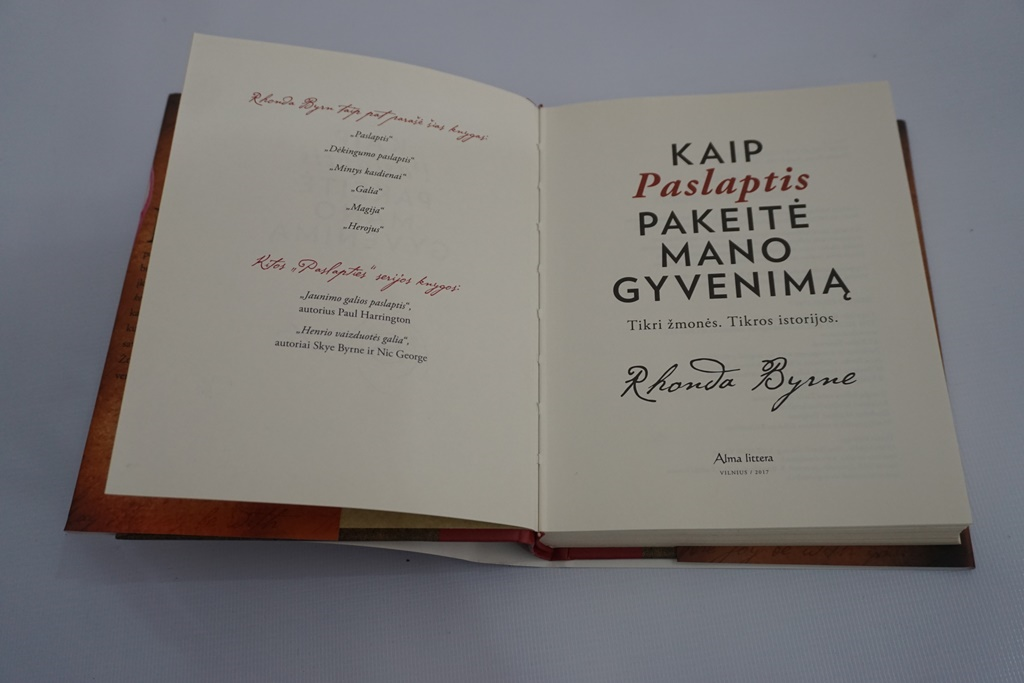 Rhonda Byrn taip pat parašė šias knygas:
„Paslaptis“
„Dėkingumo paslaptis“
„Mintys kasdienai“
„Galia“
„Magija“
„Herojus“
Kitos „Paslapties“ serijos knygos:
„Jaunimo galios paslaptis“,
autorius Paul Harrington
„Henrio vaizduotės galia“,
autoriai Skye Byrne ir Nic George
KAIP
Paslaptis
PAKEITĖ
MANO
GYVENIMĄ
Tikri žmonės. Tikros istorijos.
Rhonda Byrne
Alma littera
VILNIUS / 2017